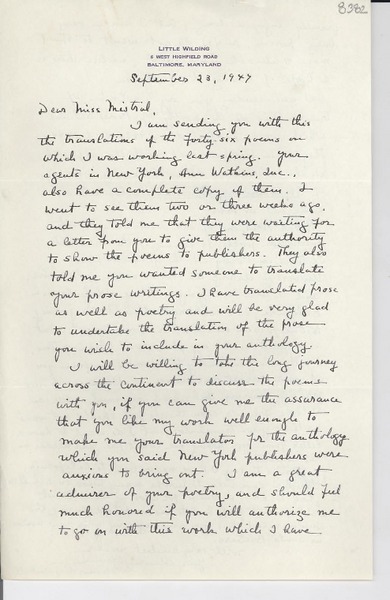 8382
LITTLE WILDING
6 WEST HIGHFIELD ROAD
BALTIMORE, MARYLAND
September 23, 1947
Dear Miss Mistral,
I am sending you with this
the translations of the forty-six poems on
which I was working last spring. Your
agents in New York, Ann Watkins, Inc.,
also have a complete copy of them. I
went to see them two or three weeks ago,
and they told me that they were waiting for
a letter from you to give them the authority
to show the poems to publishers. They also
told me you wanted someone to translate
your prose writings. I have translated prose
as well as poetry and will be very glad
to undertake the translation of the prose
you wish to include in your anthology.
I will be willing to take the long journey
across the continent to discuss the poems
with you, if you can give me the assurance
that you like my work well enough to
make me your translator for the anthology
which you said New York publishers were
anxious to bring out. I am a great
admirer of your poetry, and should feel
much honored if you will authorize me
to go on with this work which I have